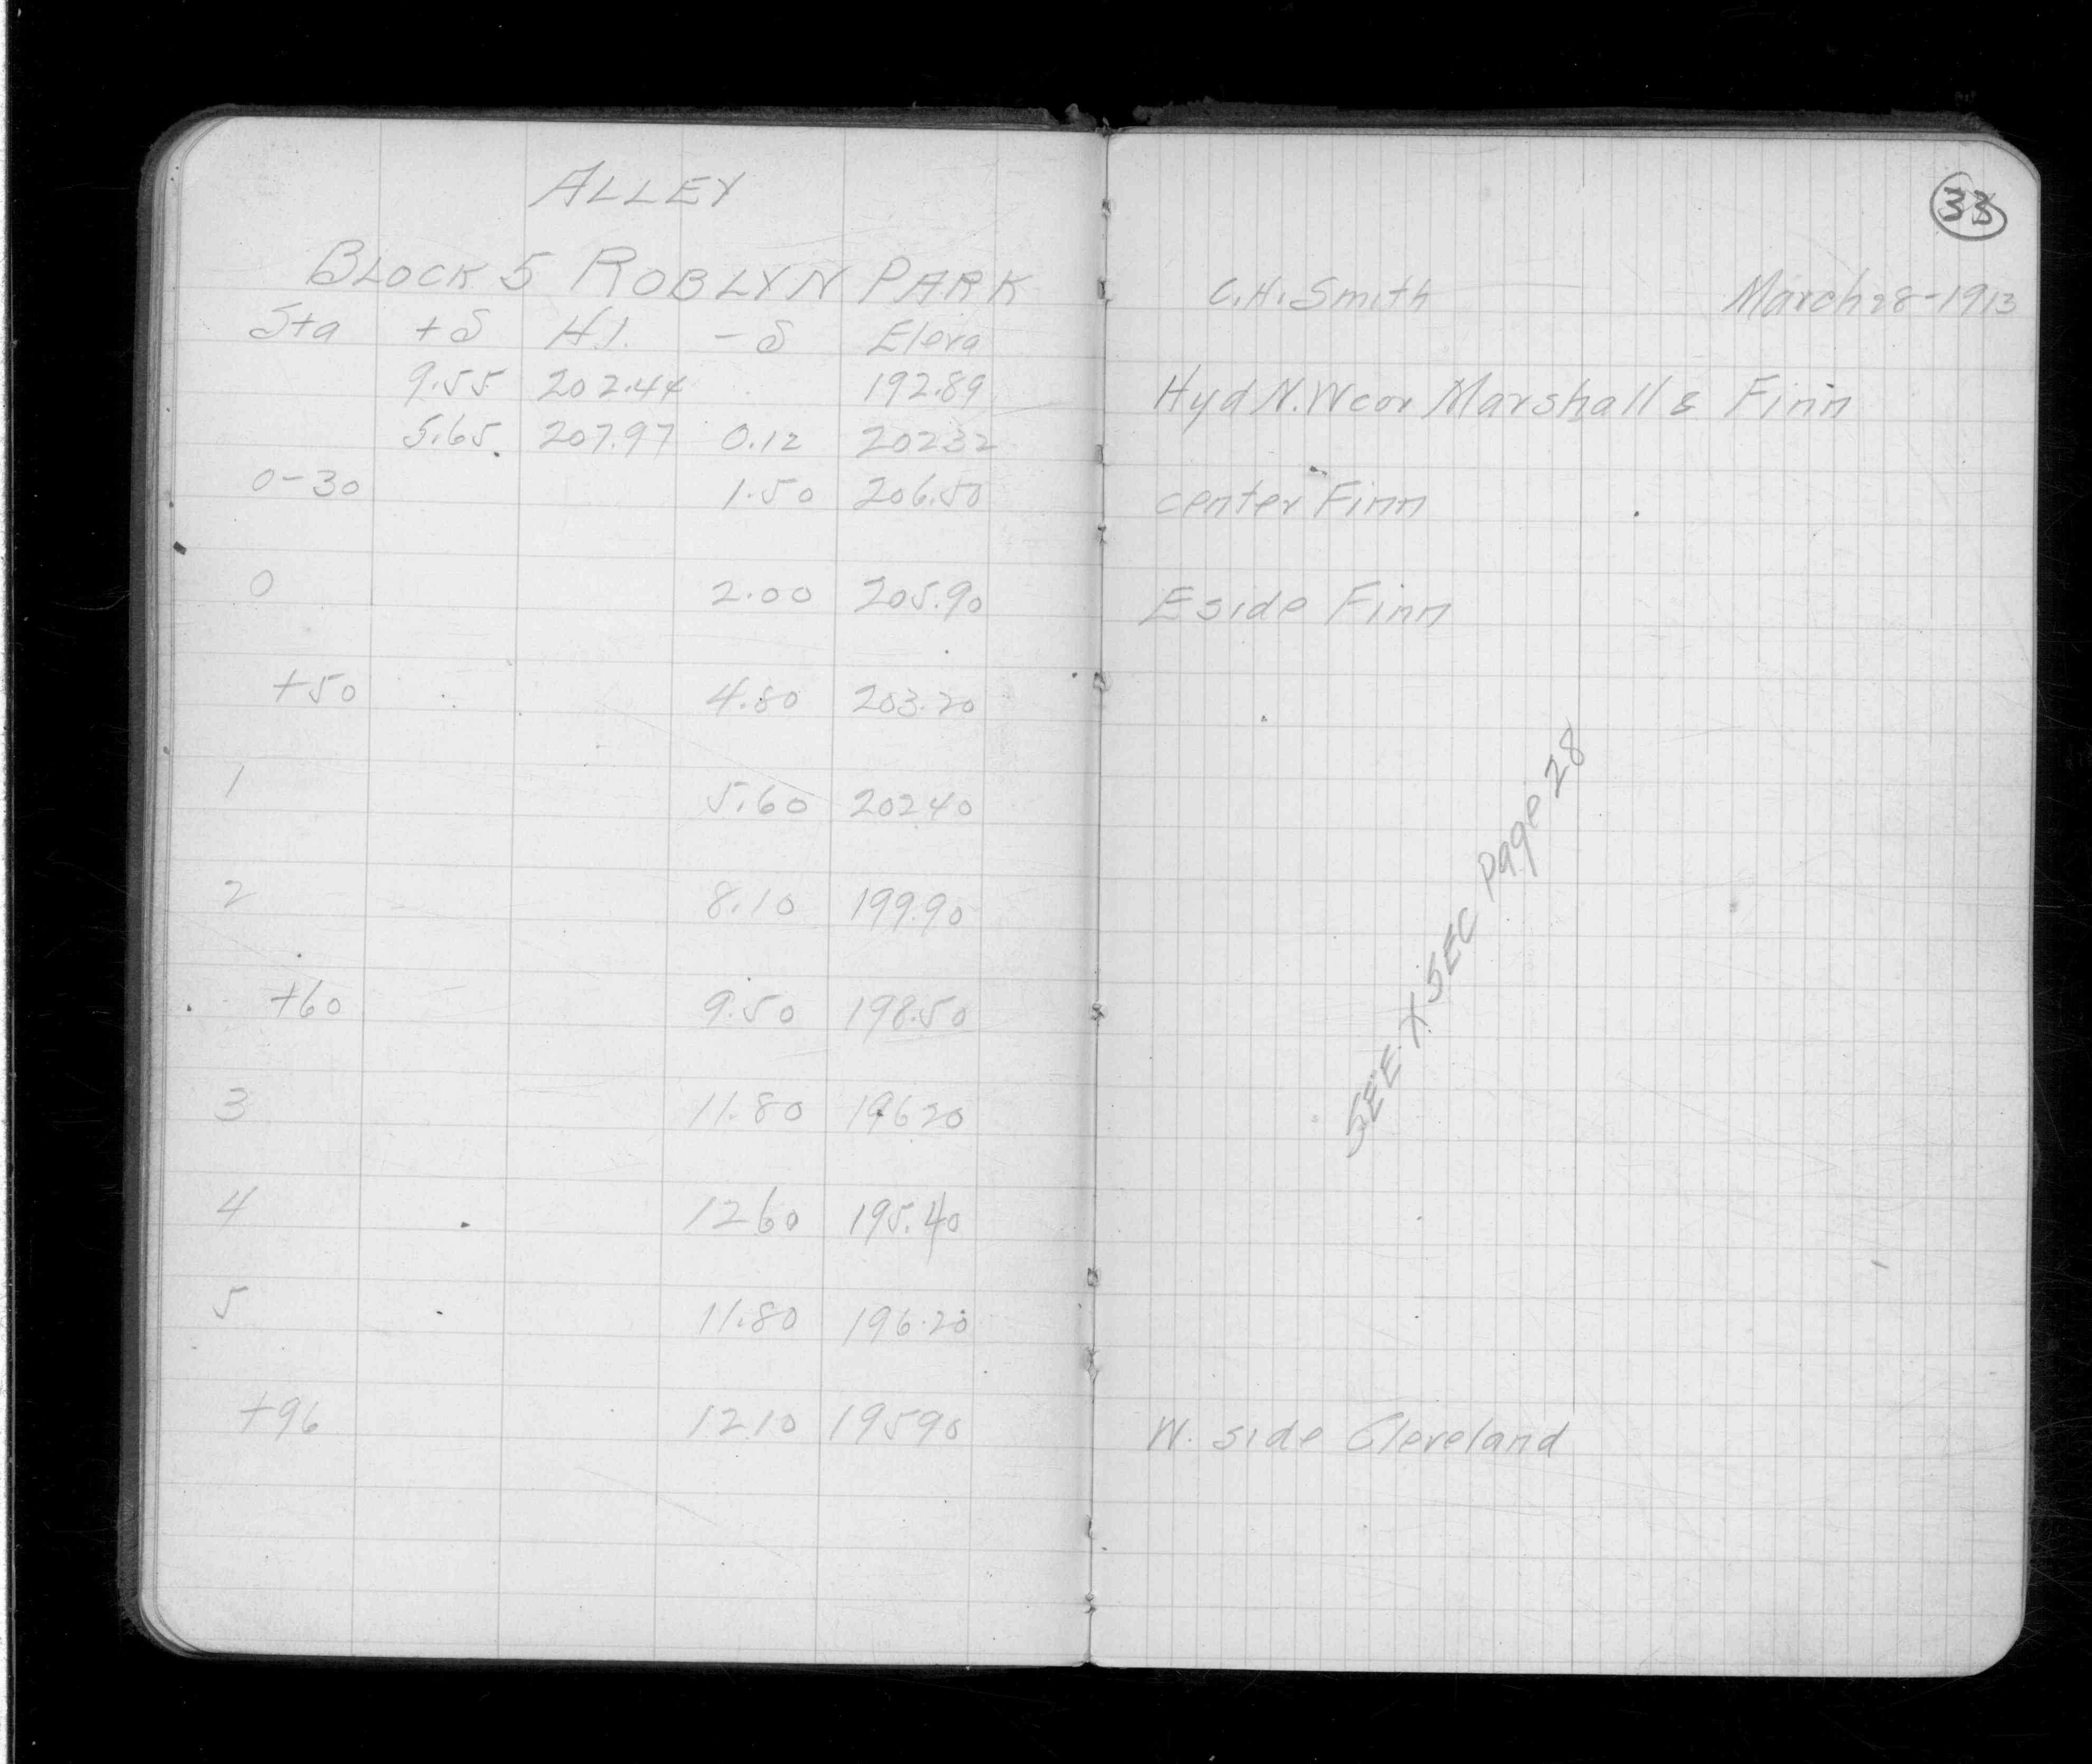 ALLEY
BLOCK 5 ROBLYN PARK
Sta +S H.I. -S Eleva
9.55 202.44 192.89
5.65 207.97 0.12 20232
0-30 1.50 206.50
0 2.00 205.90
+50 4.80 203.20
1 5.60 20240
2 8.10 199.90
+60 9.50 198.50
3 11.80 19620
4 1260 195.40
5 11.80 196.20
+96 1210 19590
33
C.H. Smith March 28-1913
Hyd N.W cor Marshall & Finn
center Finn
E side Finn
SEE X SEC page 28
W. side Cleveland